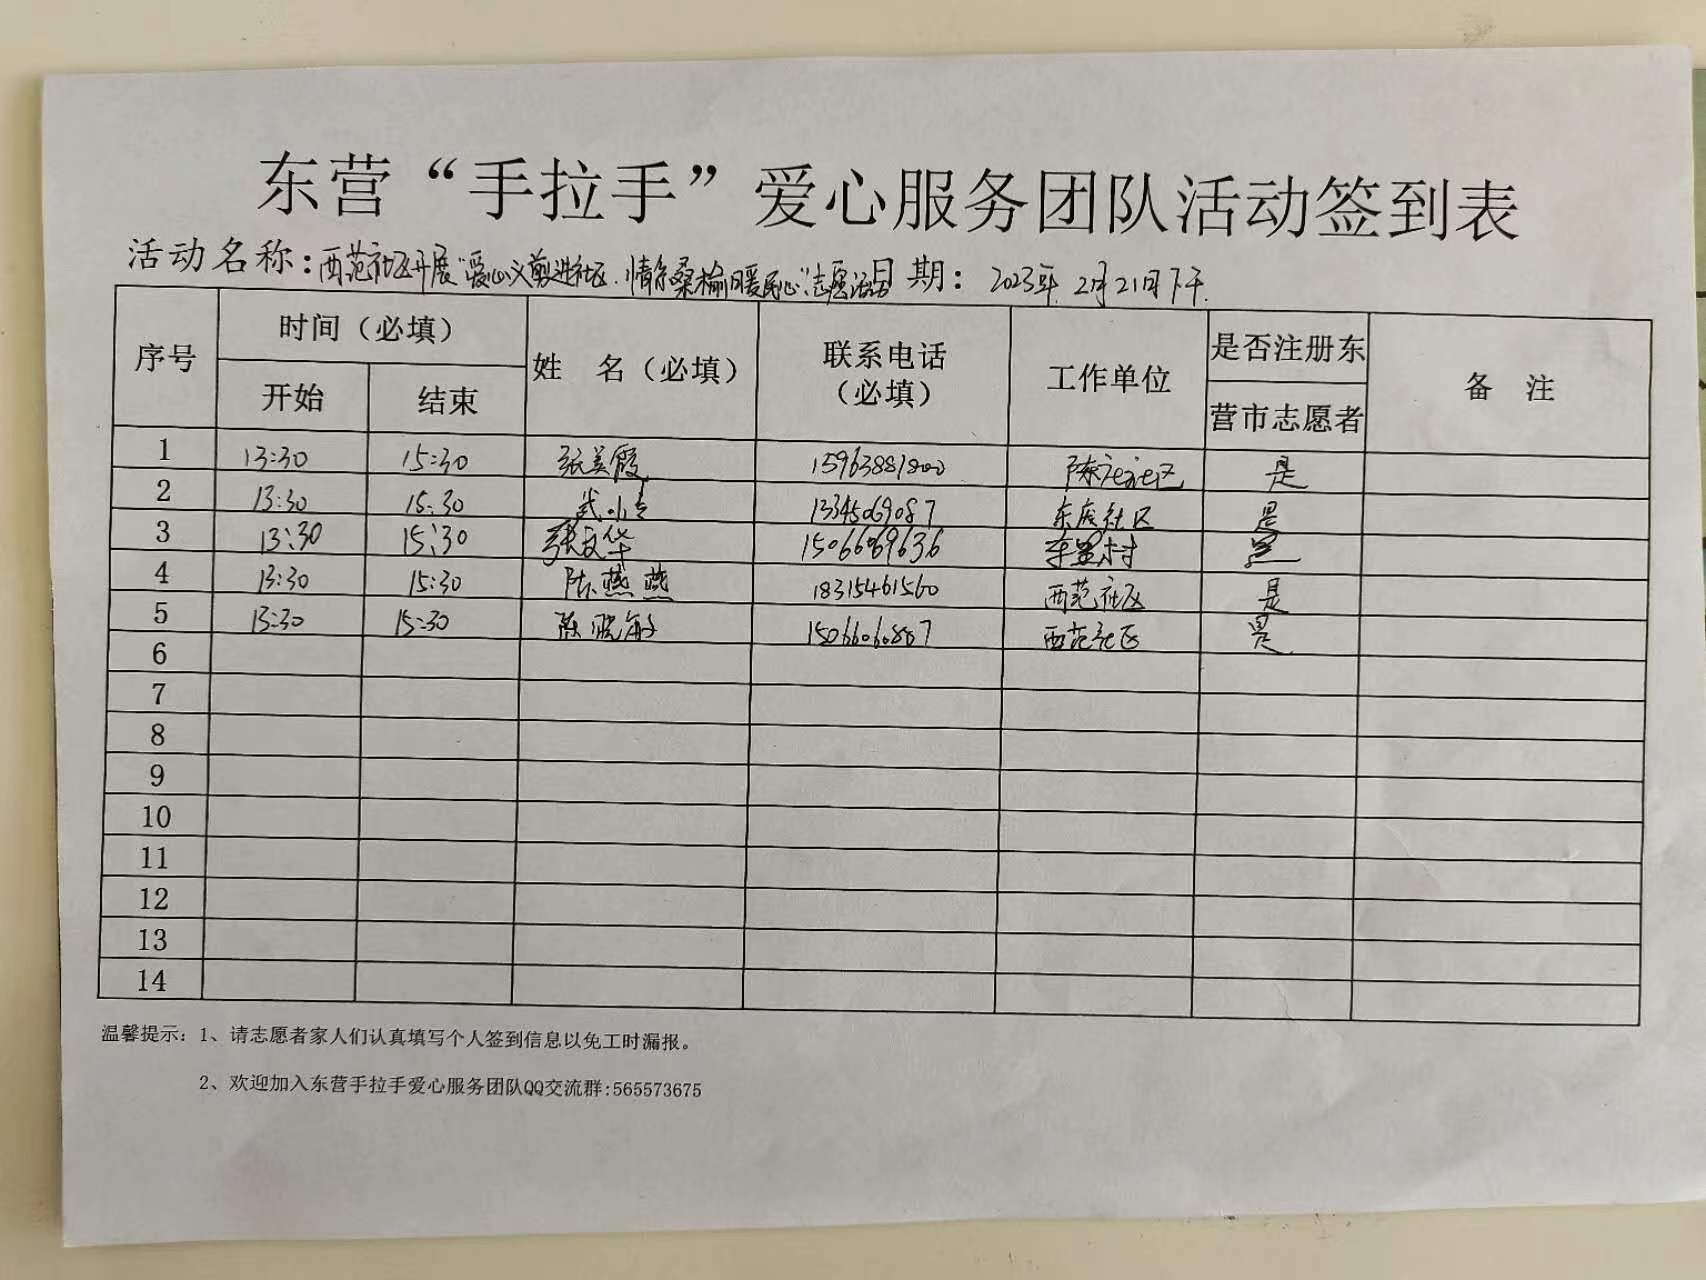 东营“手拉手”爱心服务团队活动签到表
活动名称：西范社区开展“爱心义剪进社区，情系桑榆暖民心”志愿活动 日期：2023年2月21日下午
序号 时间（必填） 姓 名（必填） 联系电话（必填） 工作单位 是否注册东营市志愿者 备 注
开始 结束
1 13:30 15:30 张美霞 15963881800 社区 是
2 13:30 15:30 武小 13345069087 社区 是
3 13:30 15:30 张文华 15066089636 村 是
4 13:30 15:30 陈燕燕 18315461560 西范社区 是
5 13:30 15:30 陈晓敏 15066060887 西范社区 是
6
7
8
9
10
11
12
13
14
温馨提示：1、请志愿者家人们认真填写个人签到信息以免工时漏报。
2、欢迎加入东营手拉手爱心服务团队QQ交流群:565573675